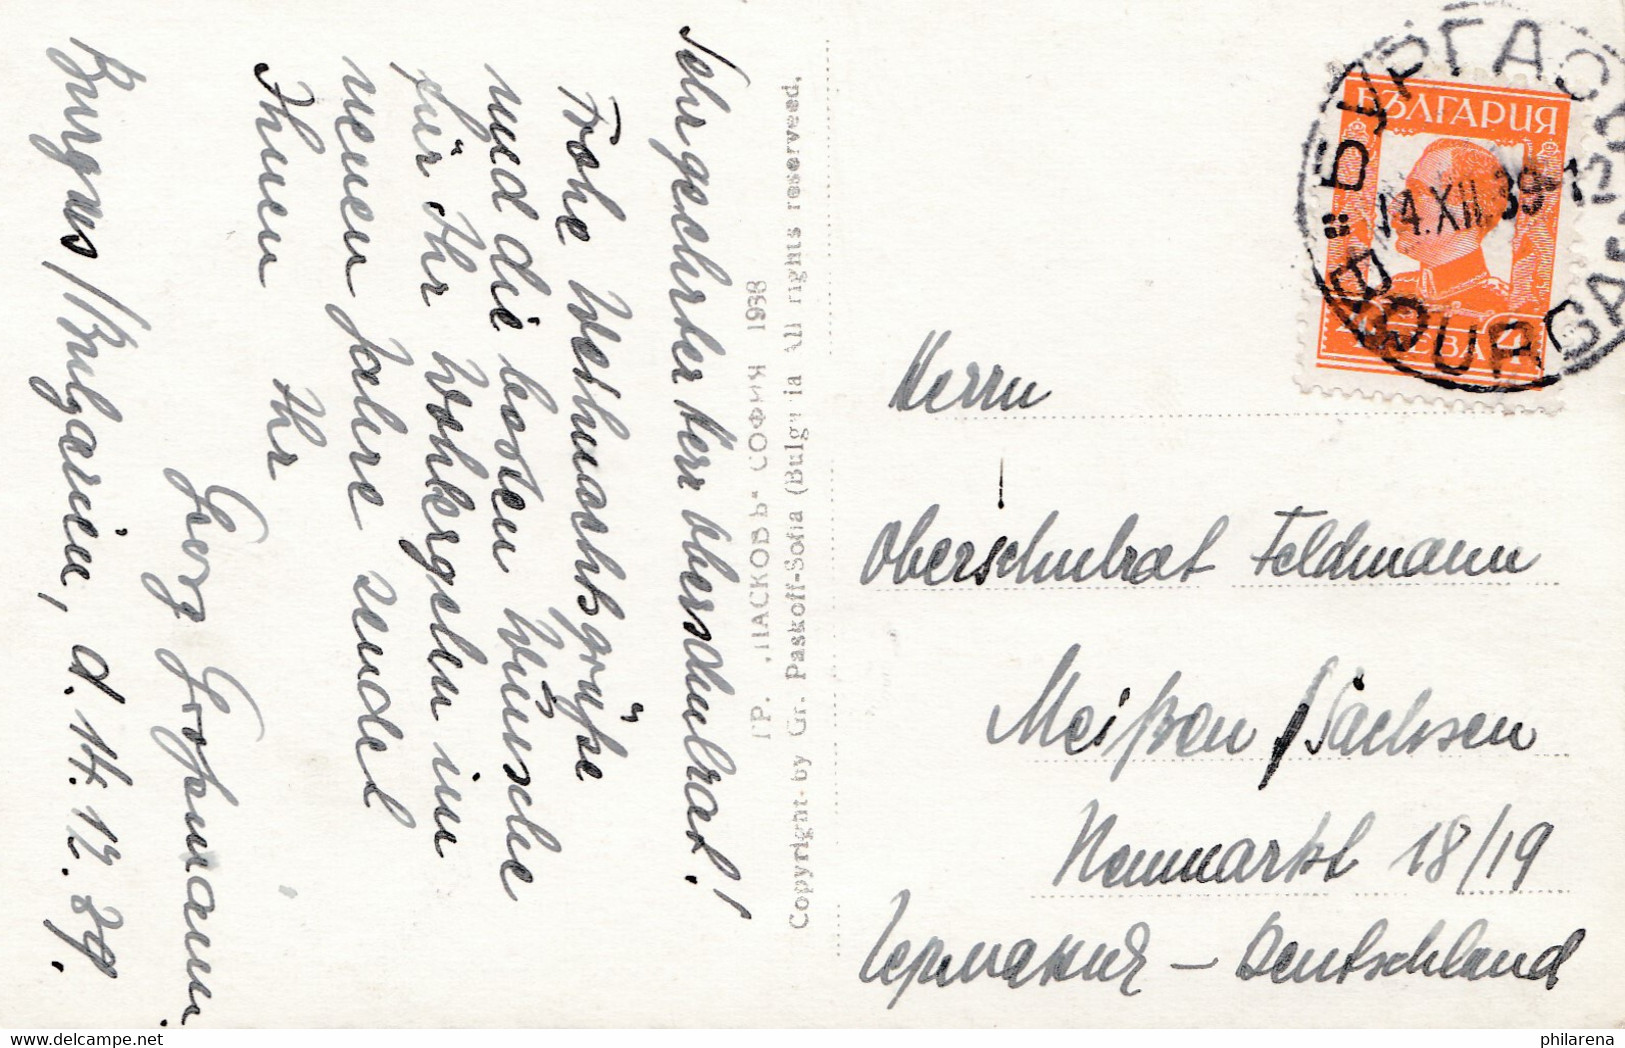 Burgas/Bulgarien, d. 14.12.39.
Sehr geehrter Herr Oberschulrat!
Frohe Weihnachtsgrüße
und die besten Wünsche
für Ihr Wohlergehen im
neuen Jahre sendet
Ihnen Ihr
Georg Großmann
ГР. „ПАСКОВЪ“ СОФИЯ 1938
Copyright by Gr. Paskoff-Sofia (Bulgaria All rights reserveed.
БУРГАС
14.XII.39-12
BOURGAS
БЪЛГАРИЯ
4 ЛЕВА 4
Herrn
Oberschulrat Feldmann
Meißen/Sachsen
Neumarkt 18/19
Германия – Deutschland
philarena